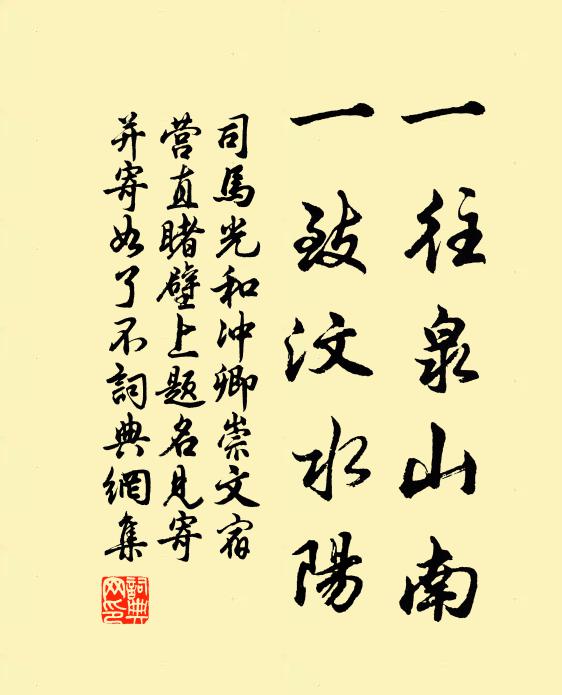 一往泉山南
一致汶水陽
司馬光和沖卿崇文宿
营直睹壁上题名見寄
并寄如了不詞典網集
詞典网印